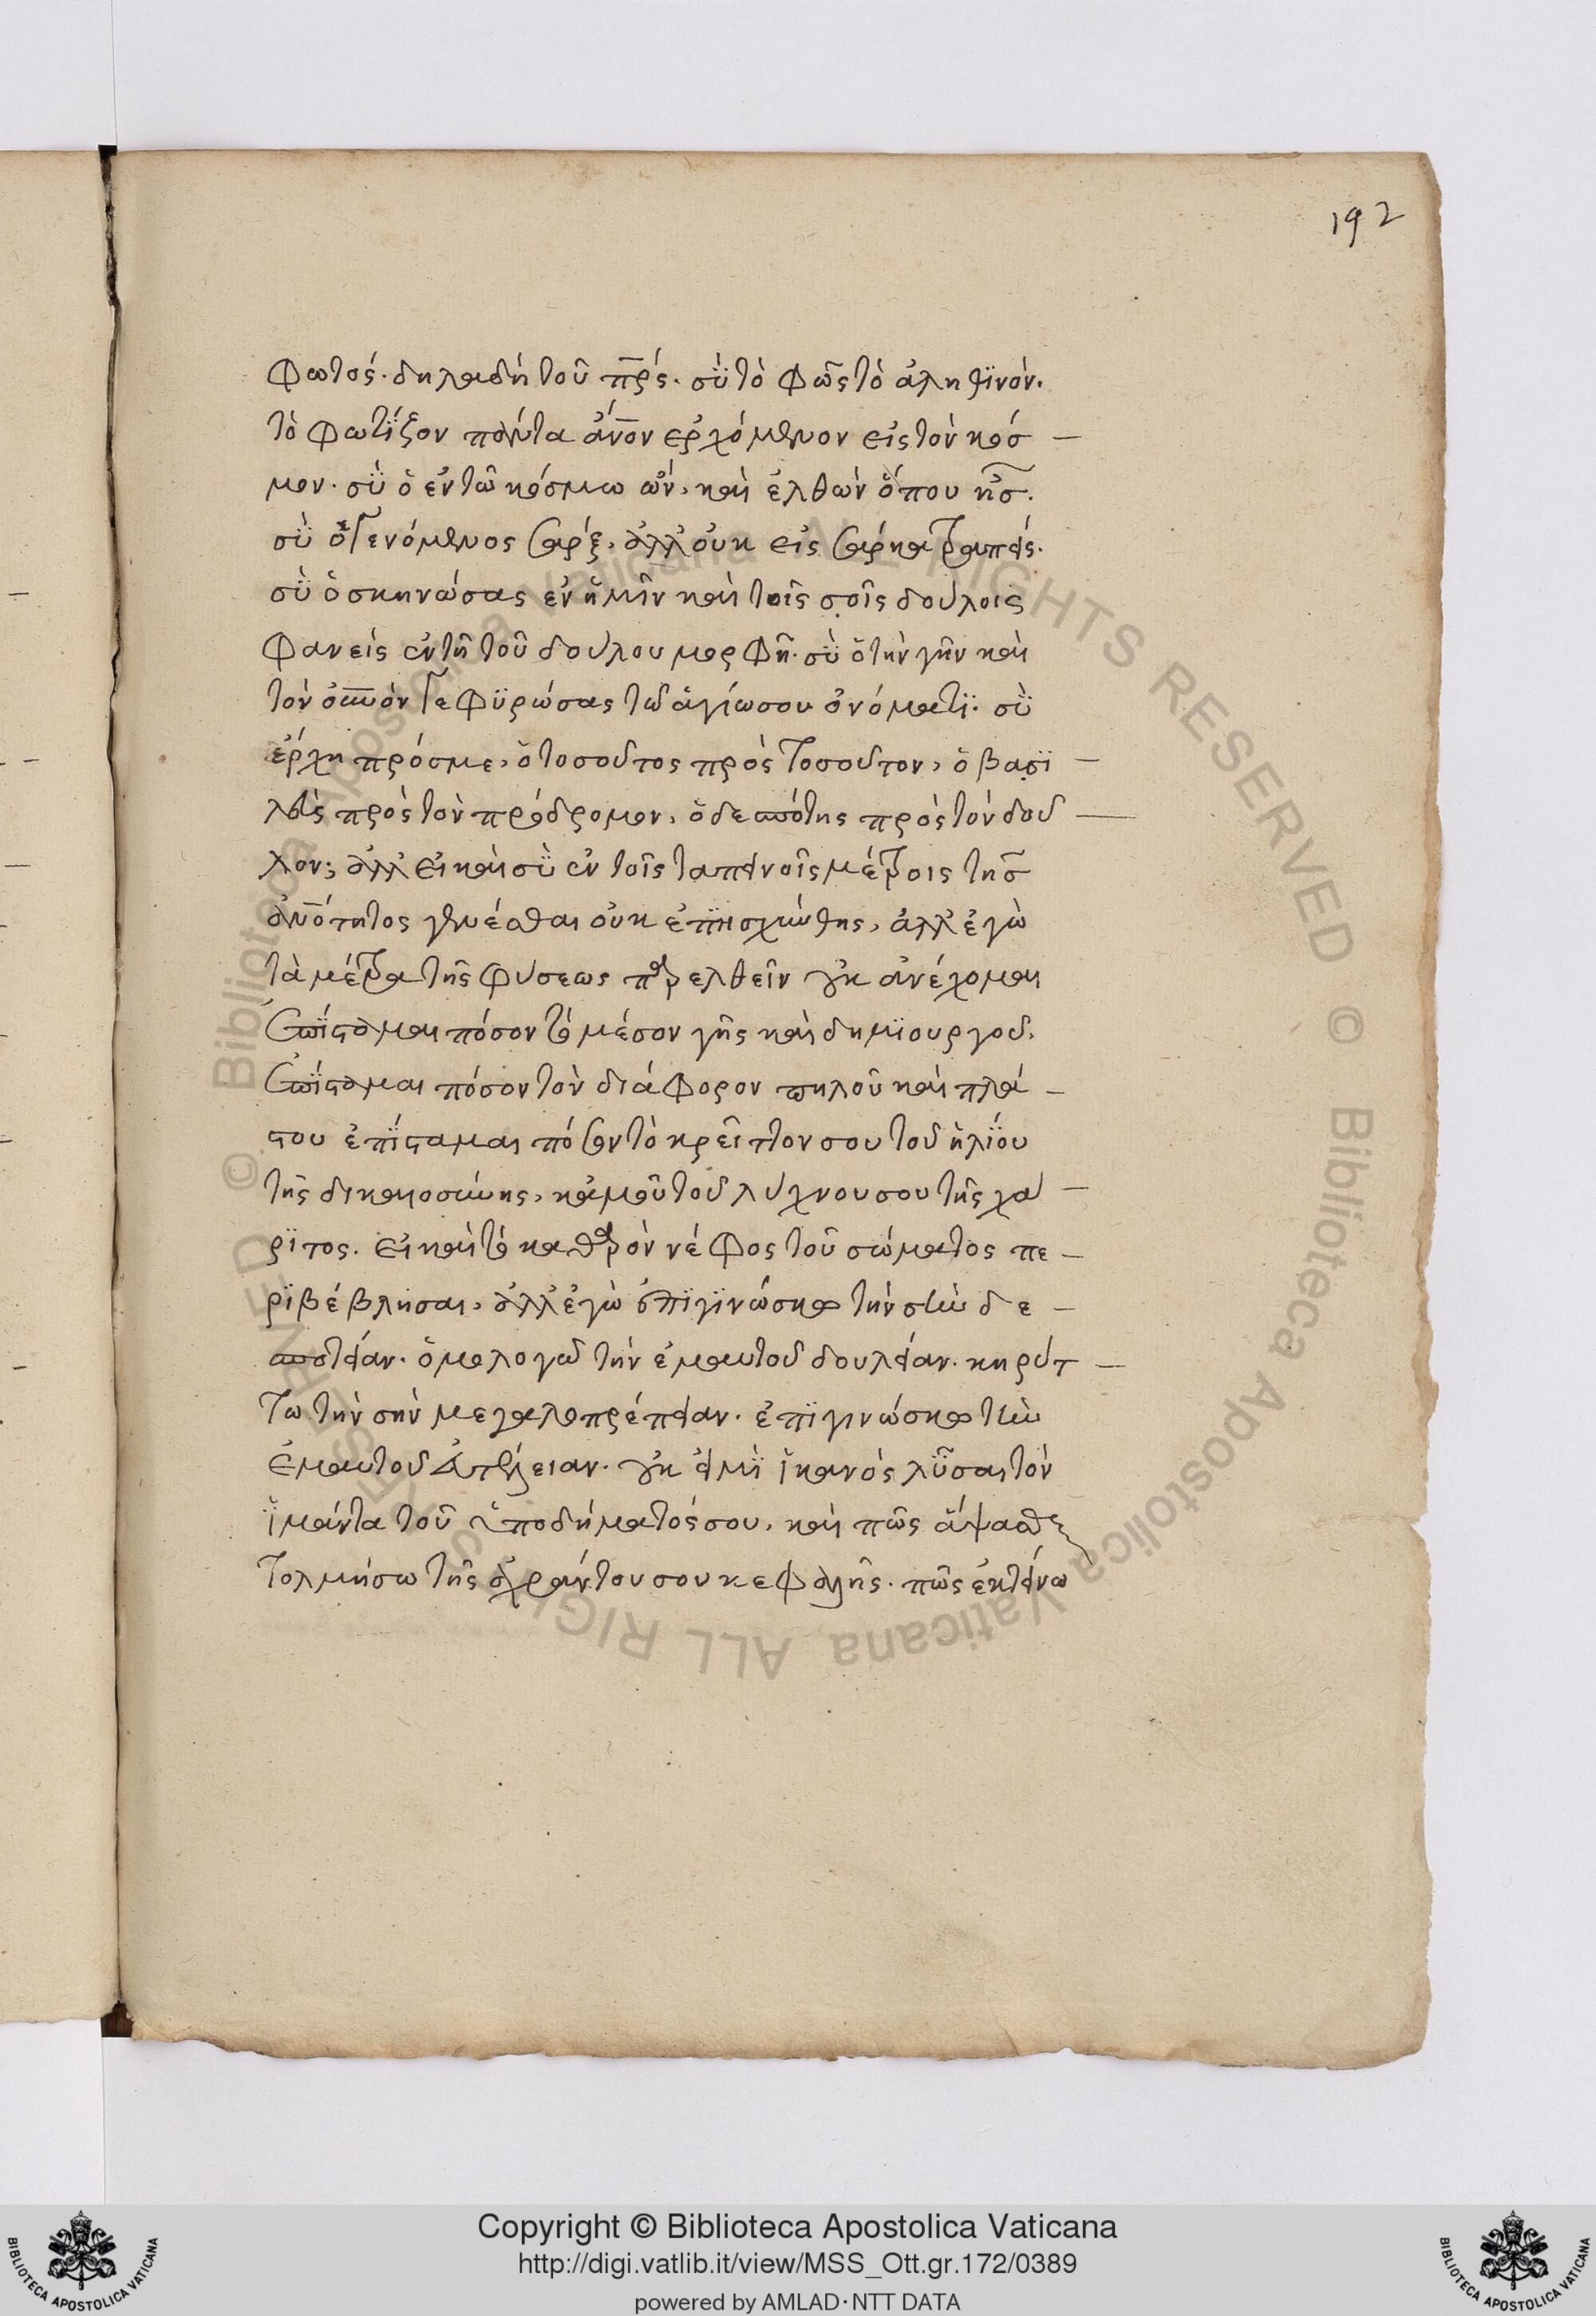 192
φωτός. δηλαδὴ τοῦ πρ̅ς. σὺ τὸ φῶς τὸ ἀληθϊνόν.
τὸ φωτίζον πάντα ἄνον ἐρχόμενον εἰς τὸν κόσ –
μον. σὺ ὁ ἐν τῶ κόσμω ὤν, καὶ ἐλθὼν ὅπου ἦσ.
σὺ ὁ γενόμενος σάρξ, ἀλλ' οὐκ εἰς σάρκα τραπείς.
σὺ ὁ σκηνώσας ἐν ἡμῖν καὶ τοῖς σοῖς δούλοις
φανεὶς ἐν τῆ τοῦ δούλου μορφῆ. σὺ ὁ τὴν γῆν καὶ
τὸν οὐνὸν γεφϋρώσας τῶ ἁγίω σου ὀνόματϊ. σὺ
ἔρχη πρός με, ὁ τοσοῦτος πρὸς τοσοῦτον, ὁ βασϊ –
λεὺς πρὸς τὸν πρόδρομον, ὁ δεσπότης πρὸς τὸν δοῦ –
λον; ἀλλ' εἰ καὶ σὺ ἐν τοῖς ταπεινοῖς μέτροις τῆσ
ἀνότητος γενέσθαι οὐκ ἐπῃσχύνθης, ἀλλ' ἐγὼ
τὰ μέτρα τῆς φύσεως παρελθεῖν οὐκ ἀνέχομαι
ἐπίσταμαι πόσον τὸ μέσον γῆς καὶ δημϊουργοῦ.
ἐπίσταμαι πόσον τὸν διάφορον πηλοῦ καὶ πλά –
στου ἐπίσταμαι πόσον τὸ κρεῖττον σου τοῦ ἡλίου
τῆς δικαιοσύνης, κἀμοῦ τοῦ λύχνου σου τῆς χά –
ρϊτος. εἰ καὶ τὸ καθαρὸν νέφος τοῦ σώματος πε –
ρϊβέβλησαι, ἀλλ' ἐγὼ ἐπϊγϊνώσκω τὴν σὴν δε –
σποτείαν. ὁμολογῶ τὴν ἐμαυτοῦ δουλείαν. κηρύτ –
τω τὴν σὴν μεγαλοπρέπειαν. ἐπϊγινώσκω τὴν
ἐμαυτοῦ εὐτέλειαν. οὐκ εἰμῒ ἱκανὸς λῦσαι τὸν
ἱμάντα τοῦ ὑποδήματός σου, καὶ πῶς ἅψασθαι
τολμήσω τῆς ἀχράντου σου κεφαλῆς. πῶς ἐκτείνω
Copyright © Biblioteca Apostolica Vaticana
http://digi.vatlib.it/view/MSS_Ott.gr.172/0389
powered by AMLAD·NTT DATA